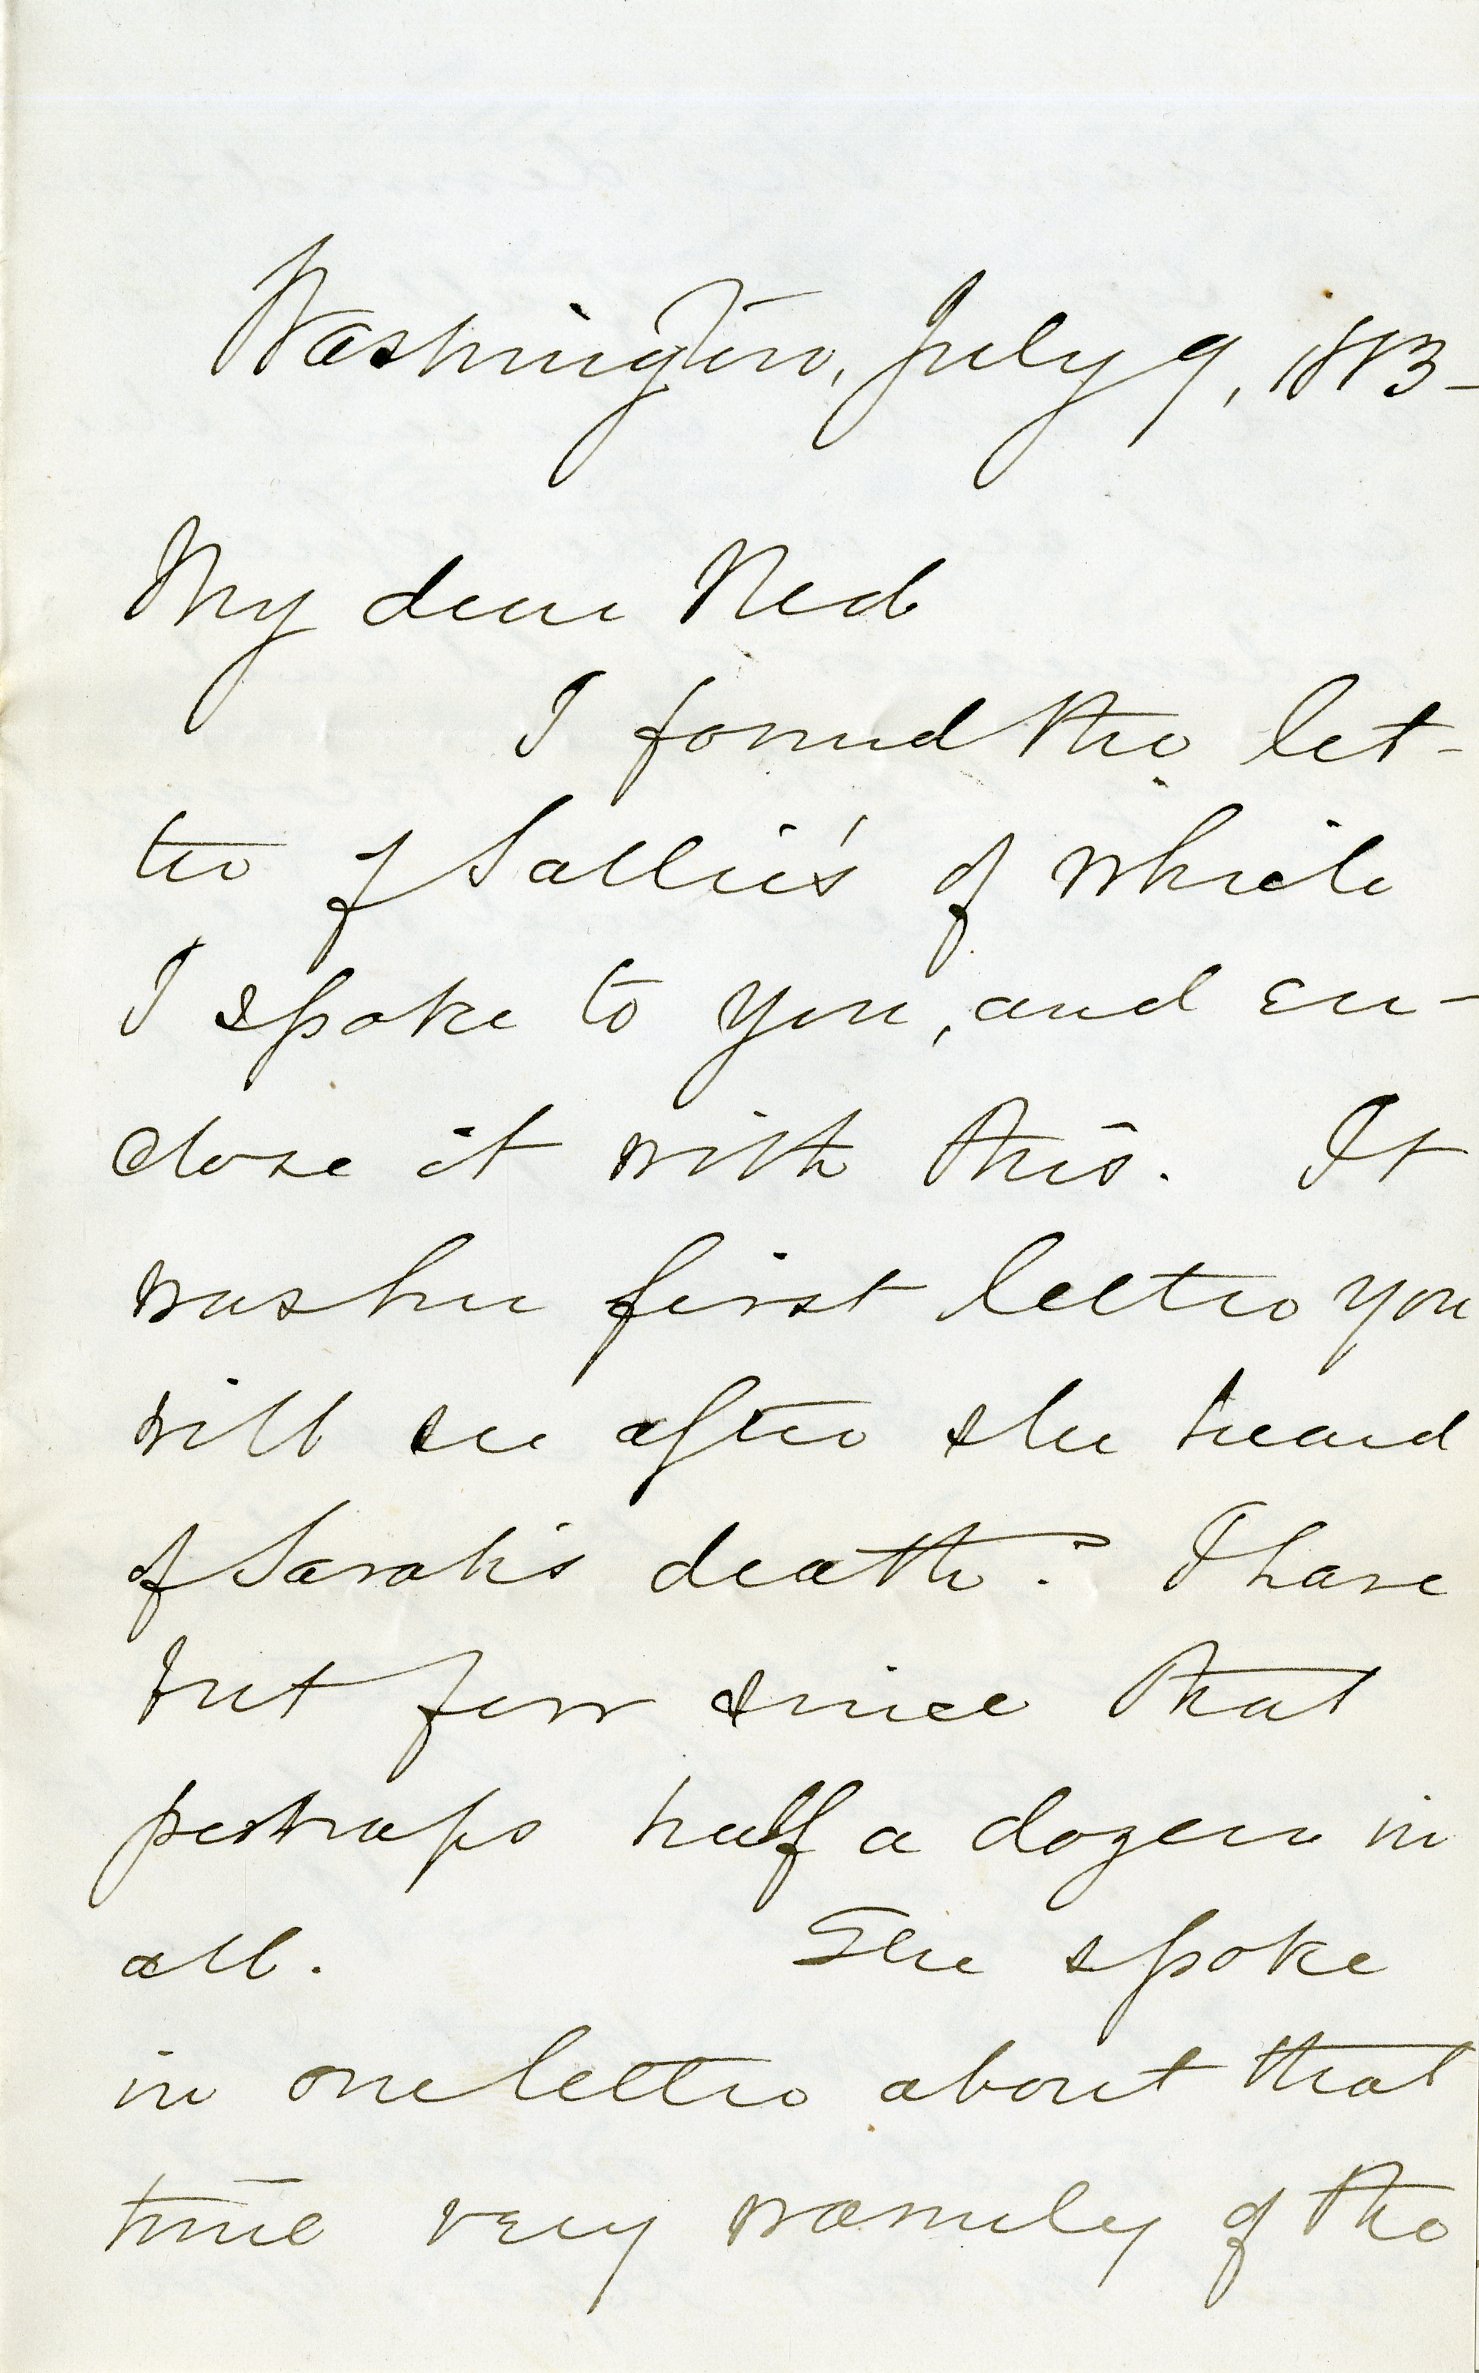 Washington, July 9, 1873-
My dear Ned
I found the let-
ter of Sallie's of which
I spoke to you, and en-
close it with this. It
was her first letter you
will see after she heard
of Sarah's death. I have
but few since that
perhaps half a dozen in
all. She spoke
in one letter about that
time very warmly of the